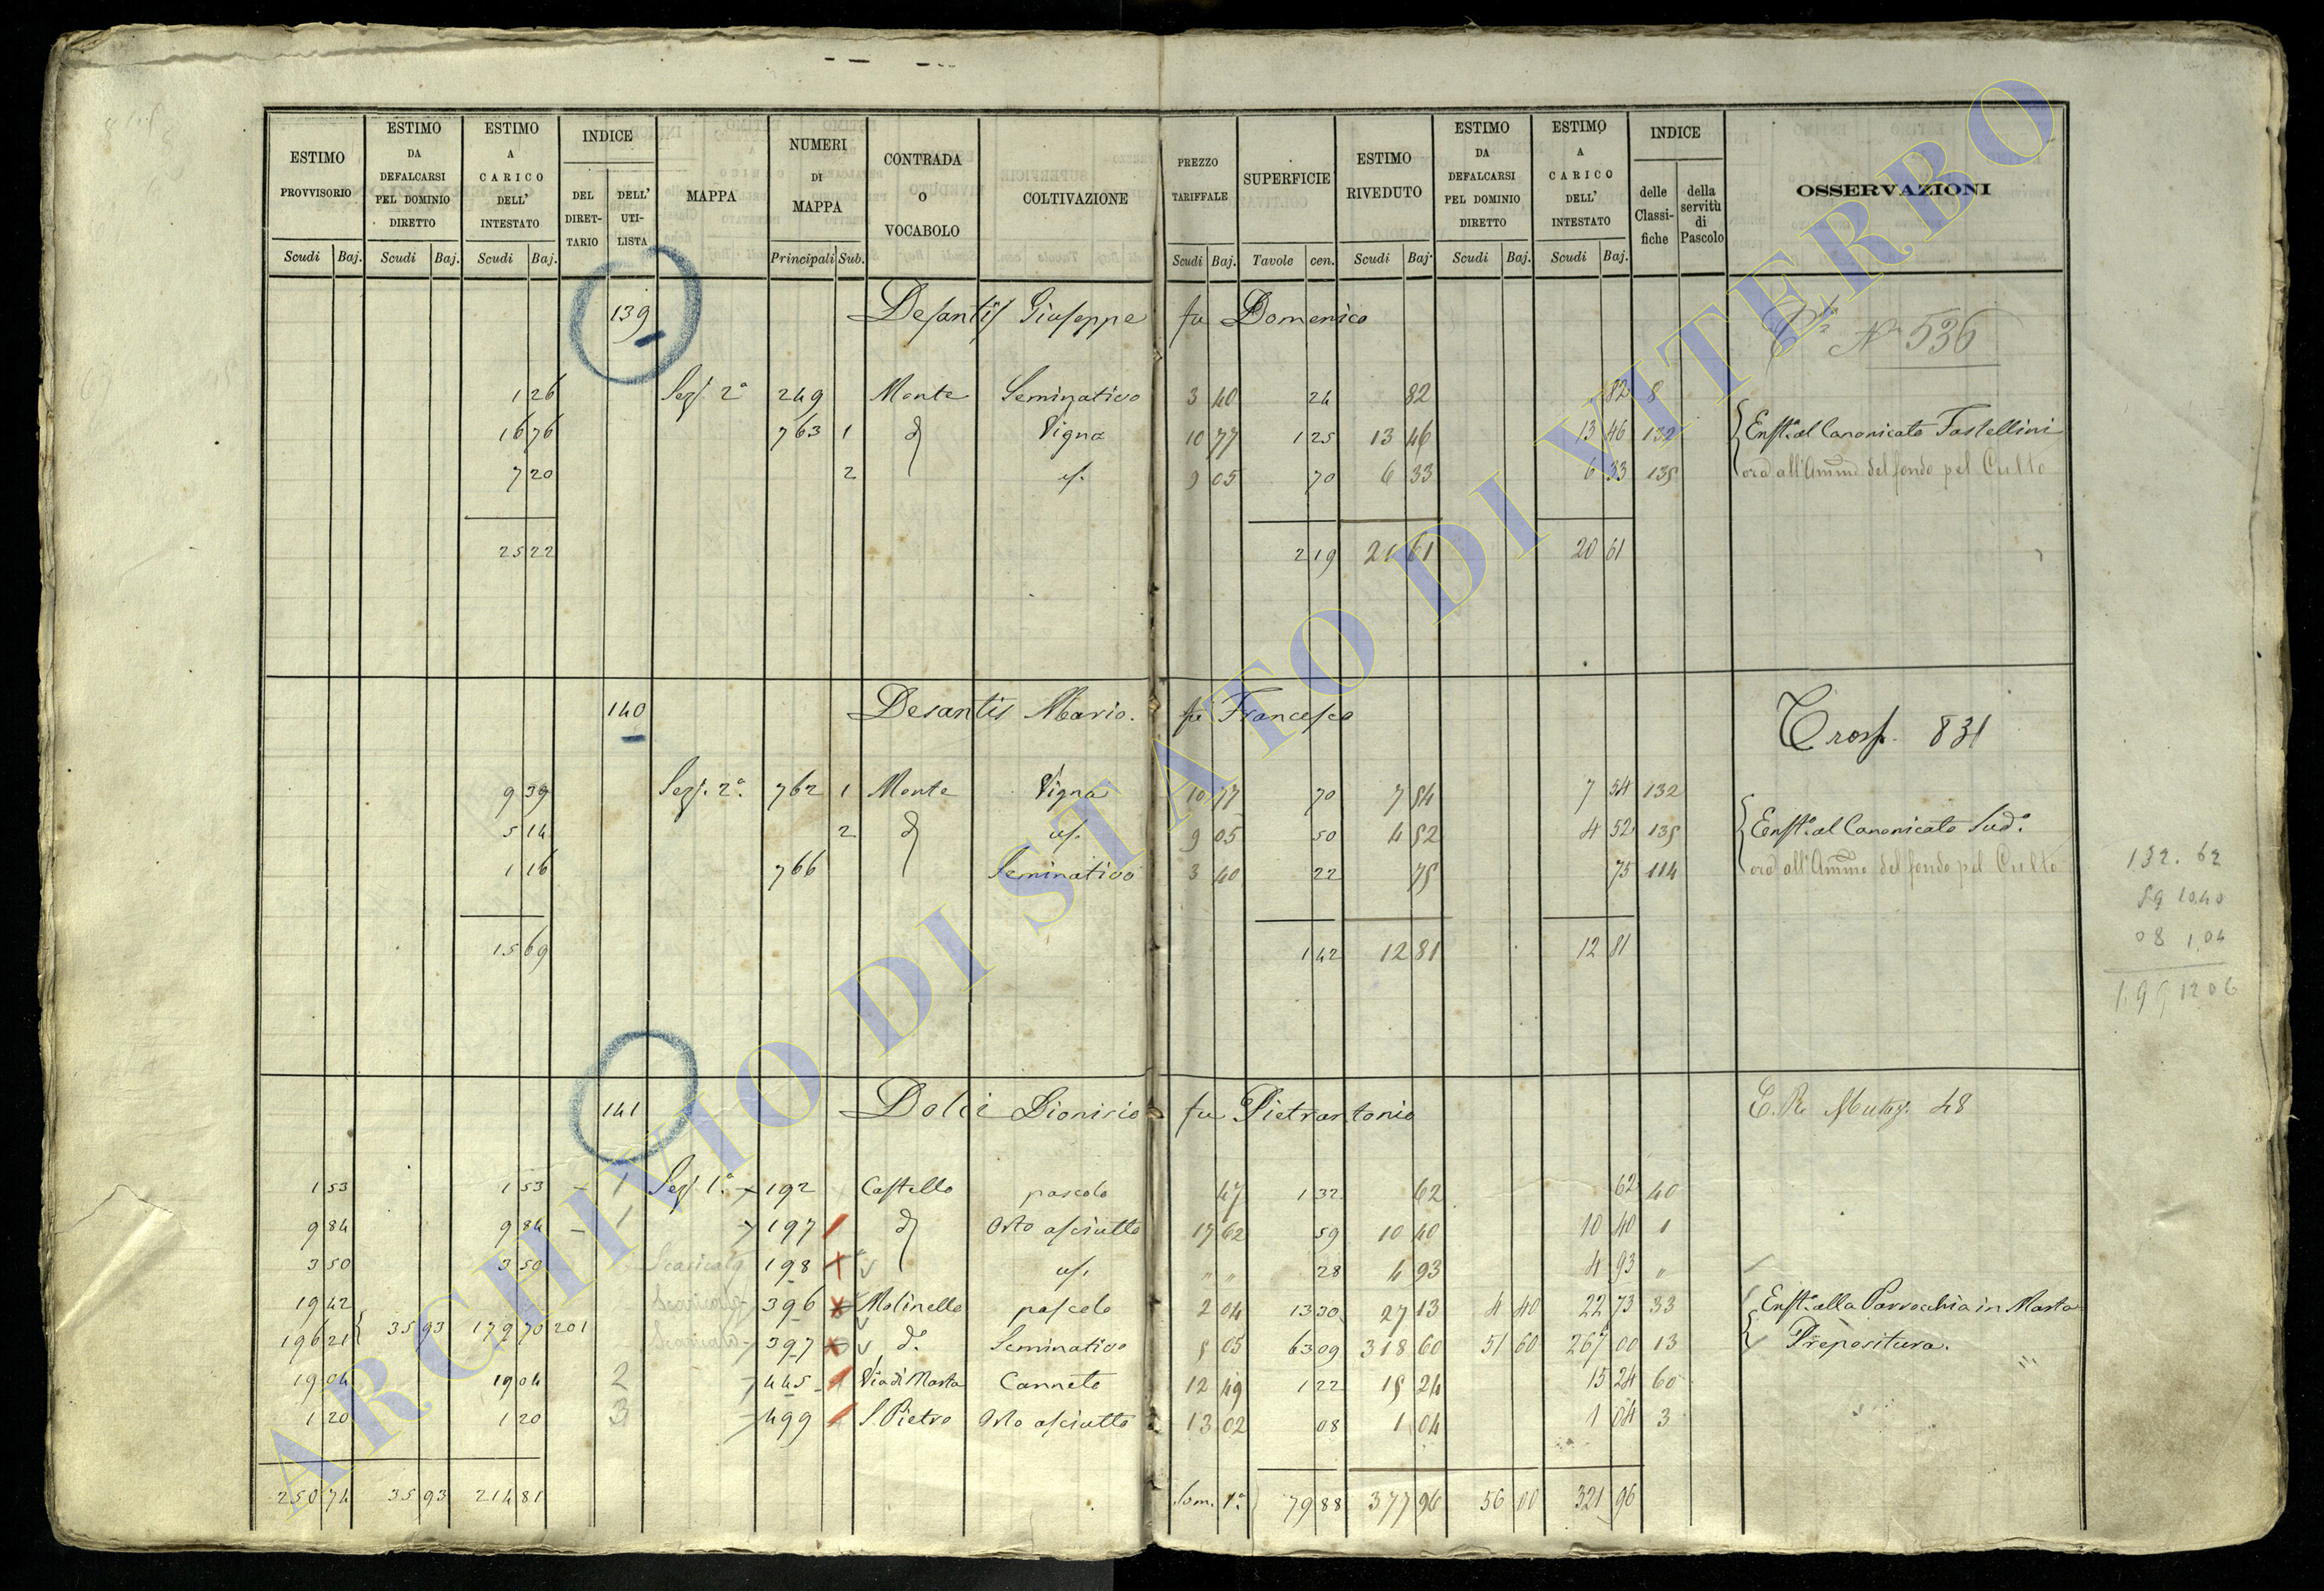 ESTIMO PROVVISORIO Scudi Baj.
ESTIMO DA DEFALCARSI PEL DOMINIO DIRETTO Scudi Baj.
ESTIMO A CARICO DELL' INTESTATO Scudi Baj.
INDICE DEL DIRET-TARIO DELL' UTI-LISTA
MAPPA
NUMERI DI MAPPA Principali Sub.
CONTRADA O VOCABOLO
COLTIVAZIONE
PREZZO TARIFFALE Scudi Baj.
SUPERFICIE Tavole cen.
ESTIMO RIVEDUTO Scudi Baj.
ESTIMO DA DEFALCARSI PEL DOMINIO DIRETTO Scudi Baj.
ESTIMO A CARICO DELL' INTESTATO Scudi Baj.
INDICE delle Classi-fiche della servitù di Pascolo
OSSERVAZIONI
139 Desantis Giuseppe fu Domenico
N° 536
1 26 Sez. 2ª 249 Monte Seminativo 3 40 24 82 82 8
16 76 763 1 d Vigna 10 77 1 25 13 46 13 46 132 Enft. al Canonicato Tastellini
7 20 2 us. 9 05 70 6 33 6 33 135 ora all'Ammne del fondo pel Culto
25 22 2 19 20 61 20 61
140 Desantis Mario fu Francesco
Trasp. 831
9 39 Sez. 2ª 762 1 Monte Vigna 10 77 70 7 54 7 54 132
5 14 2 d us. 9 05 50 4 52 4 52 135 Enft. al Canonicato Sud°
1 16 766 Seminativo 3 40 22 75 75 114 ora all'Ammne del fondo pel Culto
15 69 1 42 12 81 12 81
132. 62
59 10.40
08 1.04
1.99 12 06
141 Dolci Dionisio fu Pietrantonio
48
1 53 1 53 1 Sez. 1ª 192 Castello pascolo 47 1 32 62 62 40
9 84 9 84 1 197 d Orto asciutto 17 62 59 10 40 10 40 1
3 50 3 50 Scaricato 198 us. " " 28 4 93 4 93 "
19 42 Scaricato 396 Molinello pascolo 2 04 13 30 27 13 4 40 22 73 33 Enft. alla Parrocchia in Marta
196 21 35 93 179 70 201 Scaricato 397 d° Seminativo 5 05 63 09 318 60 51 60 267 00 13 Prepositura.
19 04 19 04 2 445 Via di Marta Canneto 12 49 1 22 15 24 15 24 60
1 20 1 20 3 499 S. Pietro Orto asciutto 13 02 08 1 04 1 04 3
250 74 35 93 214 81 Som. 1ª 79 88 377 96 56 00 321 96
ARCHIVIO DI STATO DI VITERBO